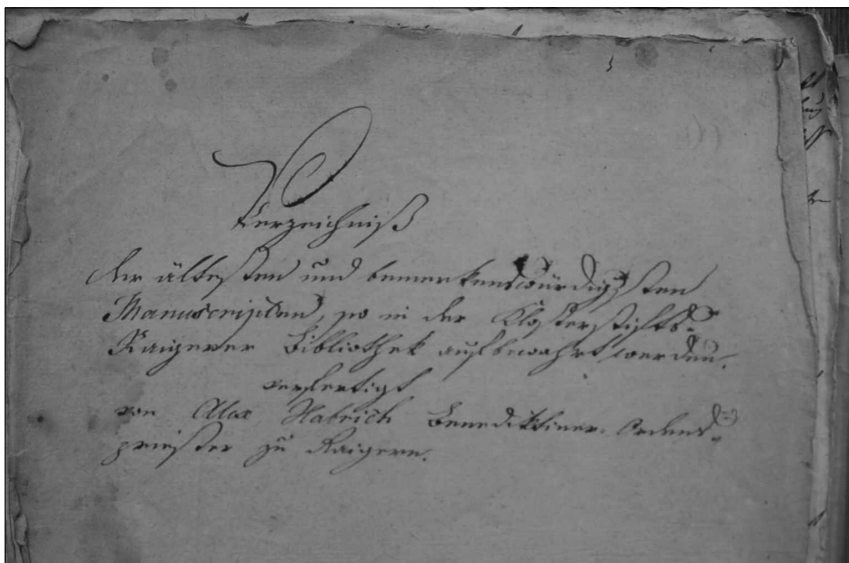 Verzeichniß
der ältesten und bemerkenswürdigsten
Manuscripten, so in der Klosterstifts-
Raigerer Bibliothek aufbewahrt werden.
verfertigt
von Alex Habrich Benediktiner-Ordens-
priester zu Raigern.